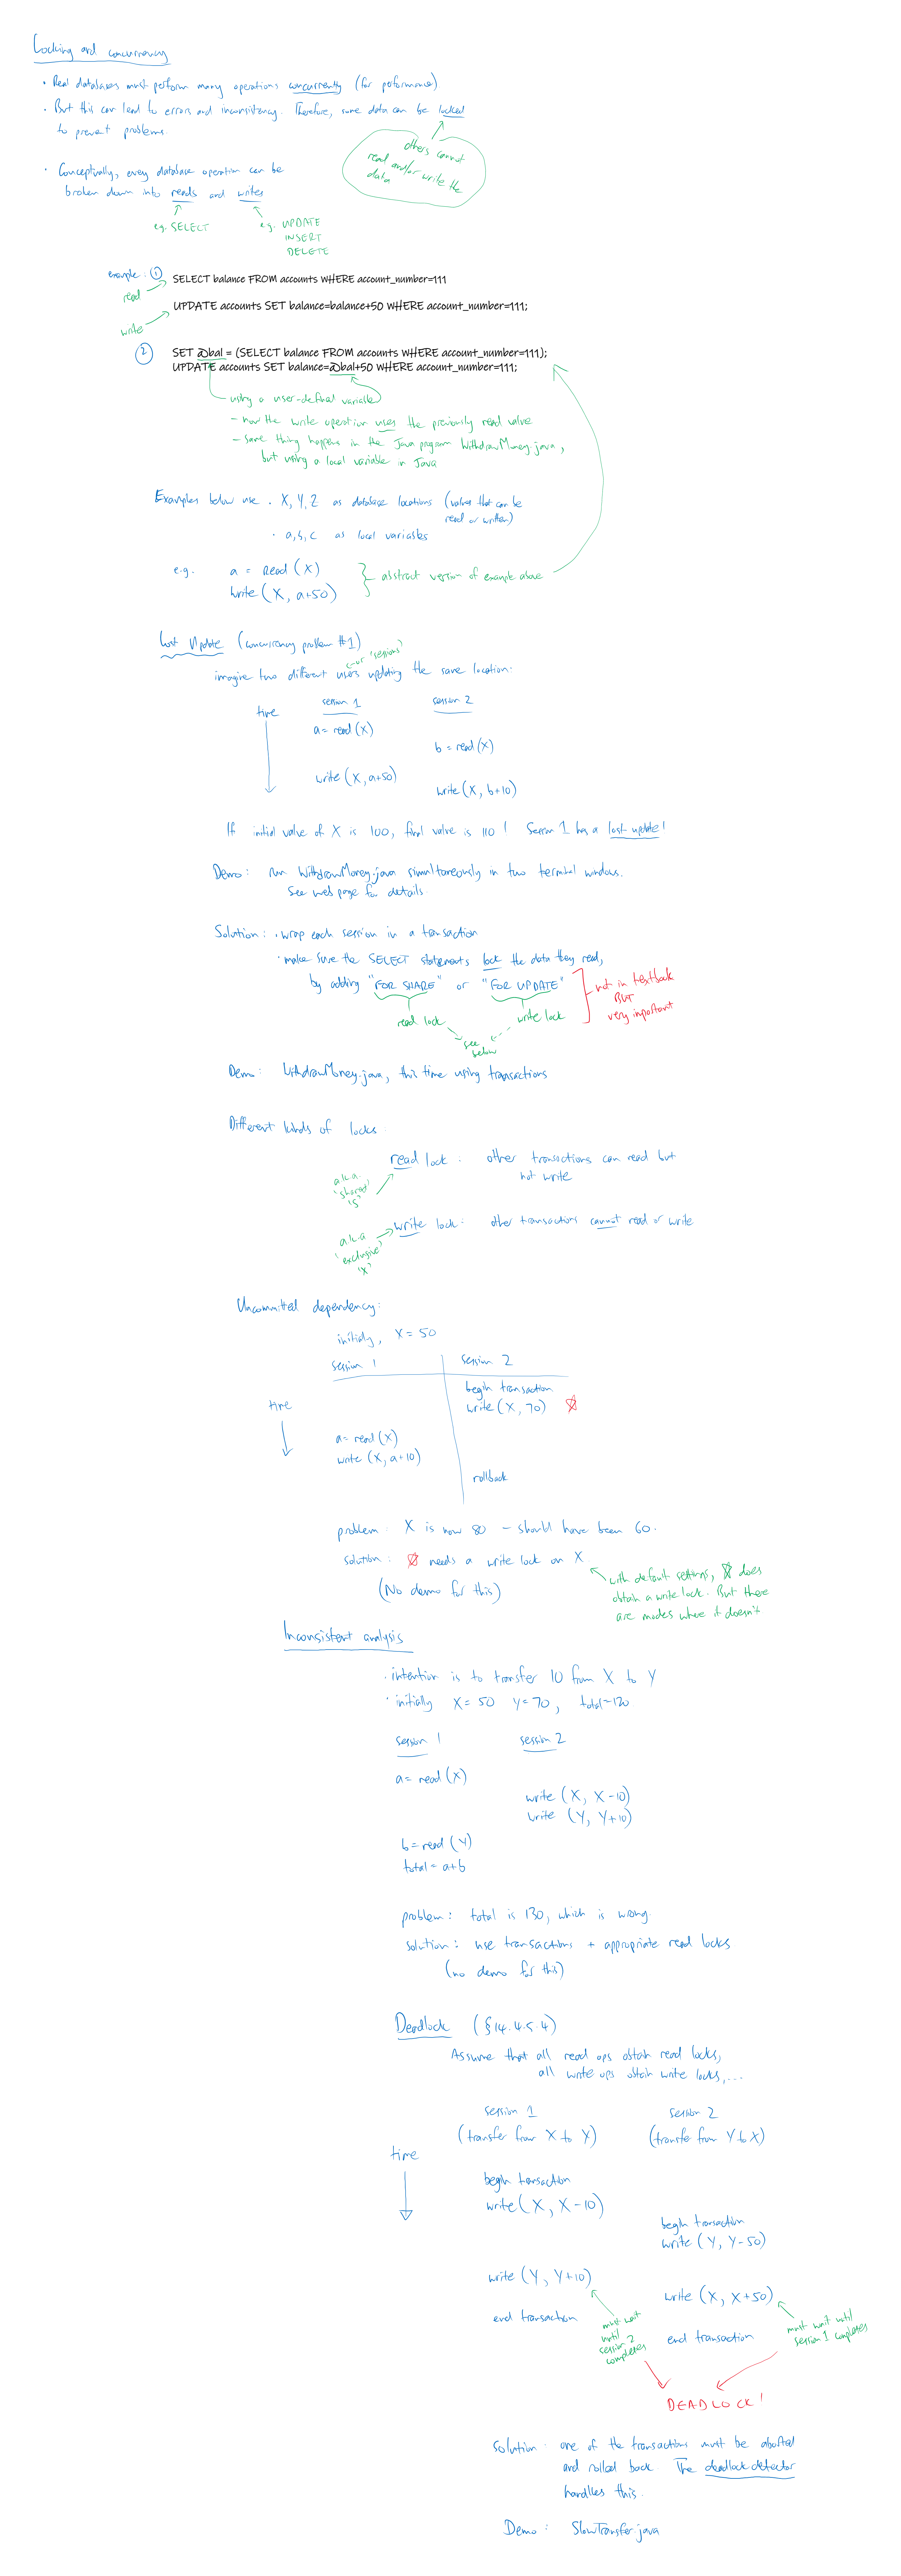 Locking and concurrency
• Real databases must perform many operations concurrently (for performance)
• But this can lead to errors and inconsistency. Therefore, some data can be locked
to prevent problems.
others cannot
read and/or write the
data
• Conceptually, every database operation can be
broken down into reads and writes
e.g. SELECT
e.g. UPDATE
INSERT
DELETE
example: ① SELECT balance FROM accounts WHERE account_number=111
read
UPDATE accounts SET balance=balance+50 WHERE account_number=111;
write
② SET @bal = (SELECT balance FROM accounts WHERE account_number=111);
UPDATE accounts SET balance=@bal+50 WHERE account_number=111;
using a user-defined variable
- now the write operation uses the previously read value
- same thing happens in the Java program WithdrawMoney.java,
but using a local variable in Java
Examples below use • X, Y, Z as database locations (values that can be
read or written)
• a, b, c as local variables
e.g. a = read(X)
write(X, a+50)
abstract version of example above
Lost Update (concurrency problem #1)
or 'sessions'
imagine two different users updating the same location:
time session 1 session 2
a = read(X)
b = read(X)
write(X, a+50)
write(X, b+10)
If initial value of X is 100, final value is 110! Session 1 has a lost update!
Demo: run WithdrawMoney.java simultaneously in two terminal windows.
See web page for details.
Solution: • wrap each session in a transaction
• make sure the SELECT statements lock the data they read,
by adding "FOR SHARE" or "FOR UPDATE"
not in textbook
BUT
very important
read lock
write lock
see
below
Demo: WithdrawMoney.java, this time using transactions
Different kinds of locks:
read lock: other transactions can read but
not write
a.k.a.
'shared'
'S'
write lock: other transactions cannot read or write
a.k.a
'exclusive'
'X'
Uncommitted dependency:
initially, X = 50
session 1 session 2
begin transaction
time
write(X, 70)
a = read(X)
write(X, a+10)
rollback
problem: X is now 80 - should have been 60.
solution: needs a write lock on X.
with default settings, does
obtain a write lock. But there
are modes where it doesn't
(No demo for this)
Inconsistent analysis
• intention is to transfer 10 from X to Y
• initially X = 50 Y = 70, total = 120
session 1 session 2
a = read(X)
write(X, X-10)
write(Y, Y+10)
b = read(Y)
total = a+b
problem: total is 130, which is wrong.
solution: use transactions + appropriate read locks
(no demo for this)
Deadlock (§14.4.5.4)
Assume that all read ops obtain read locks,
all write ops obtain write locks,...
session 1 session 2
(transfer from X to Y) (transfer from Y to X)
time
begin transaction
write(X, X-10)
begin transaction
write(Y, Y-50)
write(Y, Y+10)
write(X, X+50)
end transaction
must wait
until
session 2
completes
must wait until
session 1 completes
end transaction
DEADLOCK!
solution: one of the transactions must be aborted
and rolled back. The deadlock detector
handles this.
Demo: SlowTransfer.java